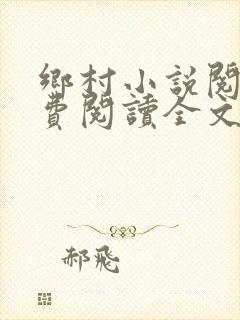 鄉村小說閱
費閱讀全文
郝飛